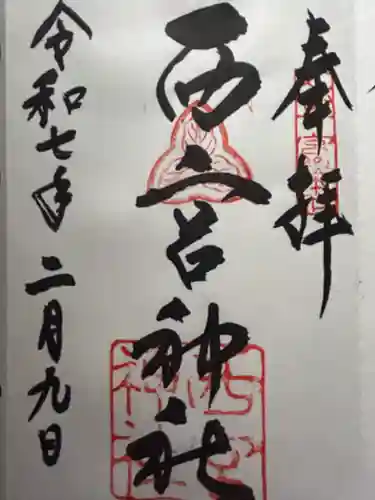 奉拝
西一呂神社
令和七年
二月九日